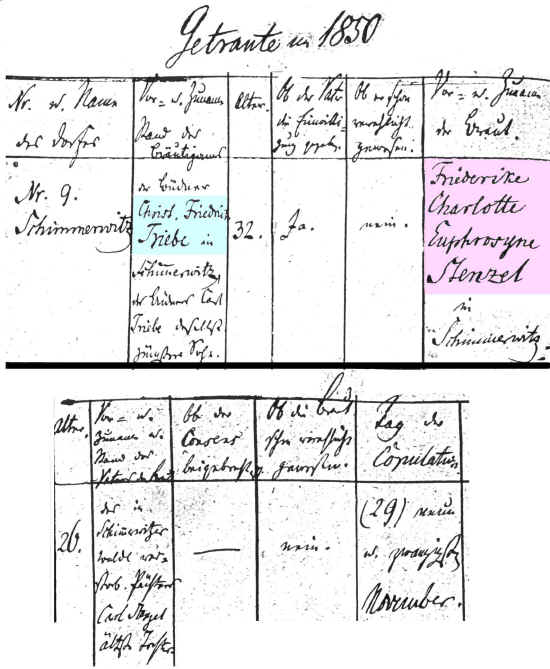 Getraute in 1850
Nr. u. Name
des Dorfes
Vor= u. Zunam
Stand des
Bräutigams
Alter.
Ob der Vater
die Einwilli-
dung
Ob er schon
verehlicht
gewesen.
Vor= u. Zunam
der Braut.
Nr. 9.
Schimmerwitz
der Büdner
Christ. Friedrich
Triebe in
Schimmerwitz,
des Büdners Carl
Triebe daselbst
jüngster Sohn.
32.
Ja.
nein.
Friederike
Charlotte
Euphrosyne
Stenzel
in
Schimmerwitz.
Alter.
Vor= u.
Zunam u.
Stand des
Vaters der Braut
Ob der
Consens
beigebracht.
Ob die Braut
schon verehlicht
gewesen.
Tag der
Copulation
26.
der in
Schimmerwitzer
walde ver=
storb. Pächters
Carl Stenzel
älteste Tochter.
—
nein.
(29) neun
u. zwanzigst
November.